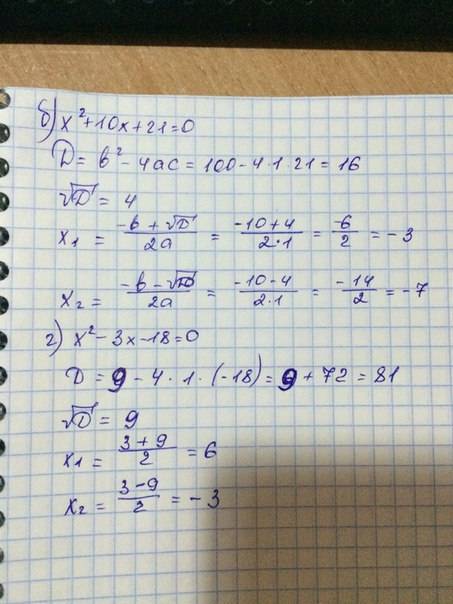 б) x²+10x+21=0
D = b² - 4ac = 100 - 4·1·21 = 16
√D = 4
x₁ = (-b + √D)/2a = (-10+4)/(2·1) = -6/2 = -3
x₂ = (-b - √D)/2a = (-10-4)/(2·1) = -14/2 = -7
г) x² - 3x - 18 = 0
D = 9 - 4·1·(-18) = 9 + 72 = 81
√D = 9
x₁ = (3+9)/2 = 6
x₂ = (3-9)/2 = -3